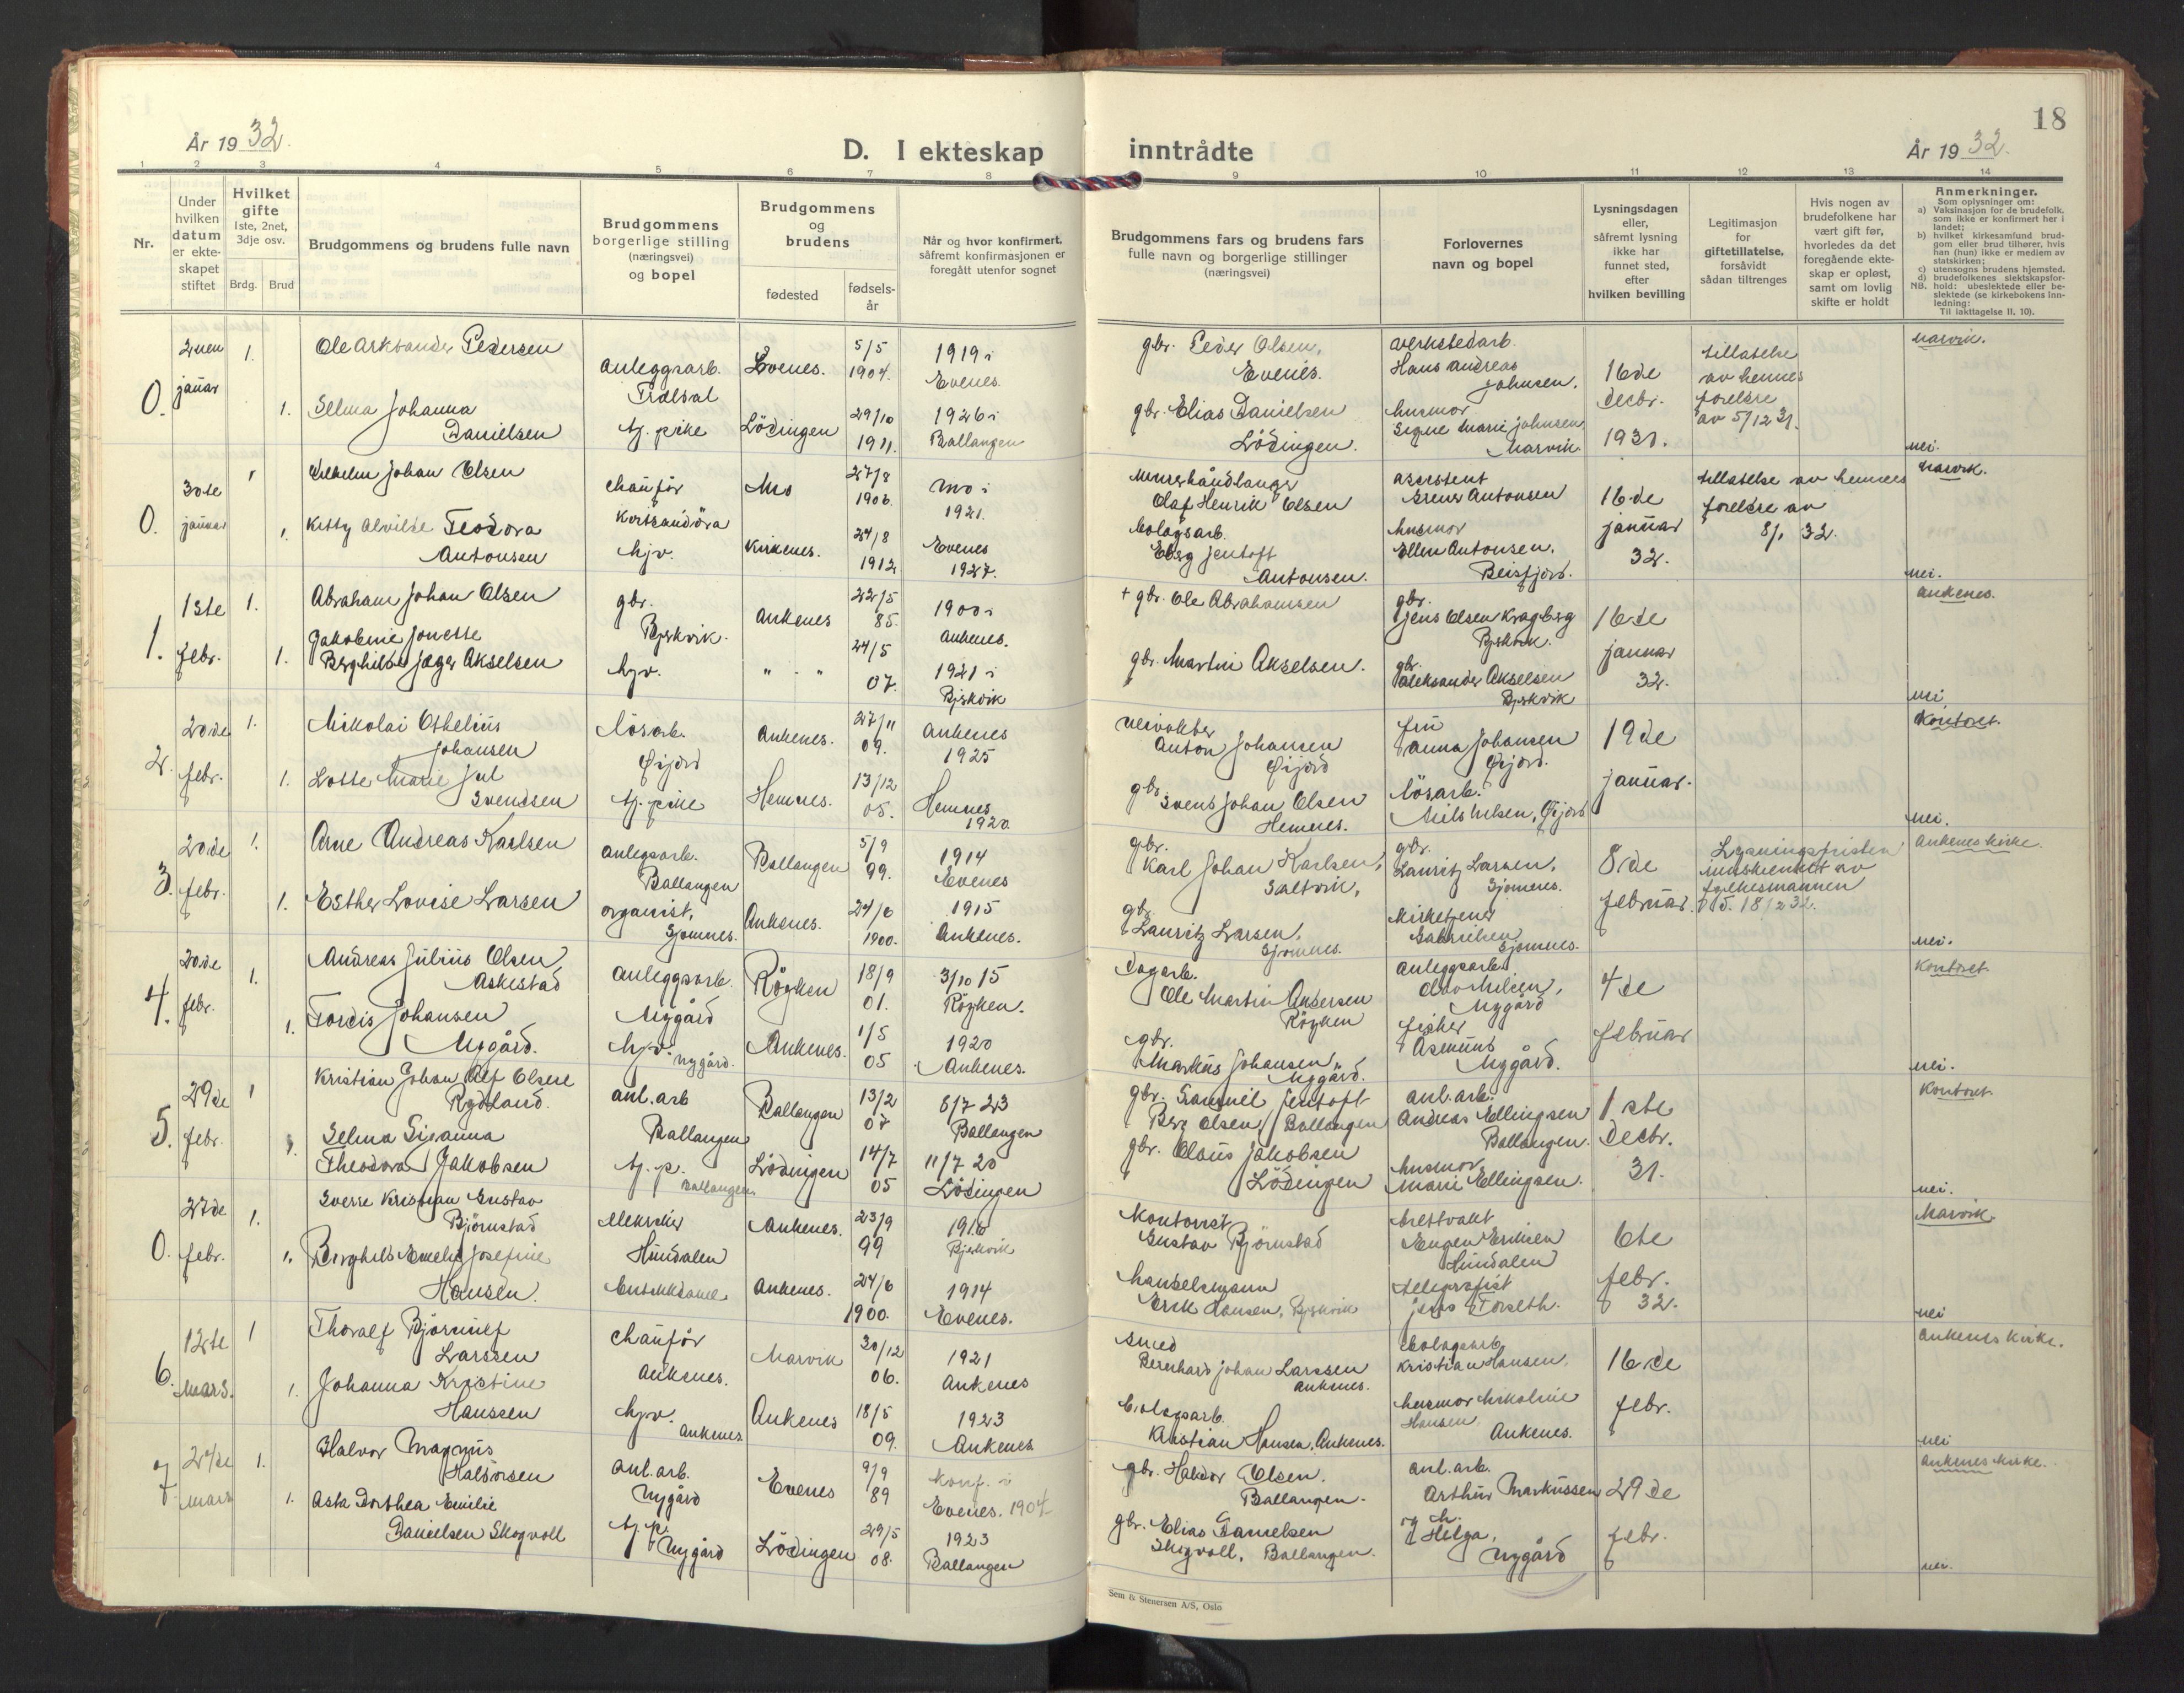 18
År 1932.
D. I ekteskap inntrådte
År 1932.
1 2 3 4 5 6 7 8 9 10 11 12 13 14
Nr.
Under hvilken datum er ekteskapet stiftet
Hvilket gifte
1ste, 2net, 3dje osv.
Brdg. Brud
Brudgommens og brudens fulle navn
Brudgommens borgerlige stilling (næringsvei) og bopel
Brudgommens og brudens
fødested
fødselsår
Når og hvor konfirmert, såfremt konfirmasjonen er foregått utenfor sognet
Brudgommens fars og brudens fars fulle navn og borgerlige stillinger (næringsvei)
Forlovernes navn og bopel
Lysningsdagen eller, såfremt lysning ikke har funnet sted, efter hvilken bevilling
Legitimasjon for giftetillatelse, forsåvidt sådan tiltrenges
Hvis nogen av brudefolkene har vært gift før, hvorledes da det foregående ekteskap er opløst, samt om lovlig skifte er holdt
Anmerkninger.
Som oplysninger om:
a) Vaksinasjon for de brudefolk, som ikke er konfirmert her i landet;
b) hvilket kirkesamfund brudgom eller brud tilhører, hvis han (hun) ikke er medlem av statskirken;
c) utensogns brudens hjemsted.
d) brudefolkenes slektskapsforhold: ubeslektede eller beslektede (se kirkebokens innledning:
NB.
Til iakttagelse II. 10).
0. 2nen januar 1. Ole Pedersen anleggsarb. Evenes. 5/5 1904. 1919 i Evenes. gbr. Peder Olsen, Evenes. verkstedarb. Hans Andreas Johnsen. 16de decbr. 1931. tillatelse av hennes foreldre av 5/12 31. Narvik.
1. Selma Johanna Danielsen tj. pike Lödingen 29/10 1911. 1926 i Ballangen gbr. Elias Danielsen Lödingen. husmor Signe Marie Johnsen Narvik nei.
0. 30te januar 1 Vilhelm Johan Olsen chauför Mo 27/8 1906. Mo i 1921. Murerhåndlanger Olaf Henrik Olsen Antonsen 16de januar 32. tillatelse av hennes foreldre av 8/1 32. Narvik.
1. Kitty Alvilde Teodora Antonsen hjv. Kirkenes. 24/8 1912 Evenes 1927. bolagsarb. Jentoft Antonsen. husmor Ellen Antonsen, Beisfjord. nei.
1. 1ste febr. 1. Abraham Johan Olsen gbr. Bjerkvik. Ankenes 22/5 85. 1900 i Ankenes. + gbr. Ole Abrahamsen gbr. Jens Olsen Kragberg Bjerkvik. 16de januar 32. Ankenes.
1. Jakobine Jonette Berghilde Jæger Akselsen hjv. " - " 24/5 07. 1921 i Bjerkvik gbr. Martin Akselsen. gbr. Aleksander Akselsen Bjerkvik nei.
2. 20de febr. 1. Nikolai Othelius Johansen lösarb. Öijord Ankenes. 27/11 09. Ankenes 1925 veivokter Anton Johansen Öijord fru Anna Johansen Öijord. 19de januar. Kontoret.
1. Lotte Marie Jul Svendsen tj. pike Hemnes. 13/12 05. Hemnes 1920. gbr. Svend Johan Olsen Hemnes. lösarb. Nils Nilsen, Öijord nei.
3. 20de febr. 1. Arne Andreas Karlsen anlegsarb. Ballangen Ballangen 5/9 99. 1914 Evenes gbr. Karl Johan Karlsen, Saltvik, gbr. Lauritz Larsen, Sjomnes. 8de februar. Lysningsfristen innskrenket av fylkesmannen 18/2 32. Ankenes kirke.
1. Esther Lovise Larsen organist, Sjomnes. Ankenes. 24/6 1900. 1915 Ankenes. gbr. Lauritz Larsen, Sjomnes. Kirketjener Gabrielsen Sjomnes. nei.
4. 20de febr. 1. Andreas Julius Olsen Askestad anleggsarb. Nygård Röyken 18/9 01. 3/10 15 Röyken. dagarb. Ole Martin Andersen Röyken anleggsarb. Nygård 4de februar Kontoret.
1. Tordis Johansen Nygård. hjv. Nygård. Ankenes. 1/5 05 1920 Ankenes. gbr. Markus Johansen, Nygård. fisker Asmund Nygård. nei.
5. 29de febr. 1 Kristian Johan Alf Olsen Rydland. anl. arb Ballangen Ballangen 13/2 07 8/7 23 Ballangen gbr. Samuel Jentoft Berg Olsen, Ballangen anl. arb. Andreas Ellingsen Ballangen. 1ste decbr. 31. Kontoret
1. Selma Susanna Theodora Jakobsen tj. p. Ballangen Lödingen 14/7 05 11/7 20 Lödingen gbr. Claus Jakobsen Lödingen husmor Marie Ellingsen. nei.
0. 27de febr. 1. Sverre Kristian Gustav Björnstad Hundalen Ankenes. 23/9 99 1916 Bjerkvik Kontorist Gustav Björnstad Eugen Eriksen Hundalen 6te febr. 32. Narvik.
1. Berghild Emelie Josefine Hansen. butikkdame Ankenes. 24/6 1900. 1914 Evenes. handelsmann Erik Hansen, Bjerkvik telegrafist Torseth. nei
6. 12te mars. 1 Thoralf Björnulf Larssen chauför Ankenes. Narvik 30/12 06. 1921 Ankenes smed Bernhard Johan Larssen Ankenes. bolagsarb. Kristian Hansen, 16de febr. Ankenes kirke.
1. Johanna Kristine Hanssen hjv. Ankenes Ankenes 18/5 09. 1923 Ankenes bolagsarb. Kristian Hansen, Ankenes. husmor Nikoline Hansen Ankenes. nei
7. 24de mars 1. Halvor Magnus Halvorsen anl. arb. Nygård Evenes 9/9 89 Konf. i Evenes. 1904 gbr. Haldor Olsen. Ballangen. anl. arb. Arthur Markussen 29de febr. Ankenes kirke.
1. Asta Dorthea Emilie Danielsen Skogvoll tj. p. Nygård Lödingen 29/5 08. 1923 Ballangen gbr. Elias Danielsen Skogvoll, Ballangen. og h. Helga, Nygård nei.
Sem & Stenersen A/S, Oslo